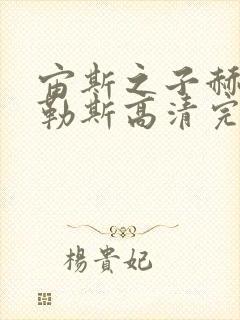 宙斯之子赫
勒斯高清完
楊貴妃